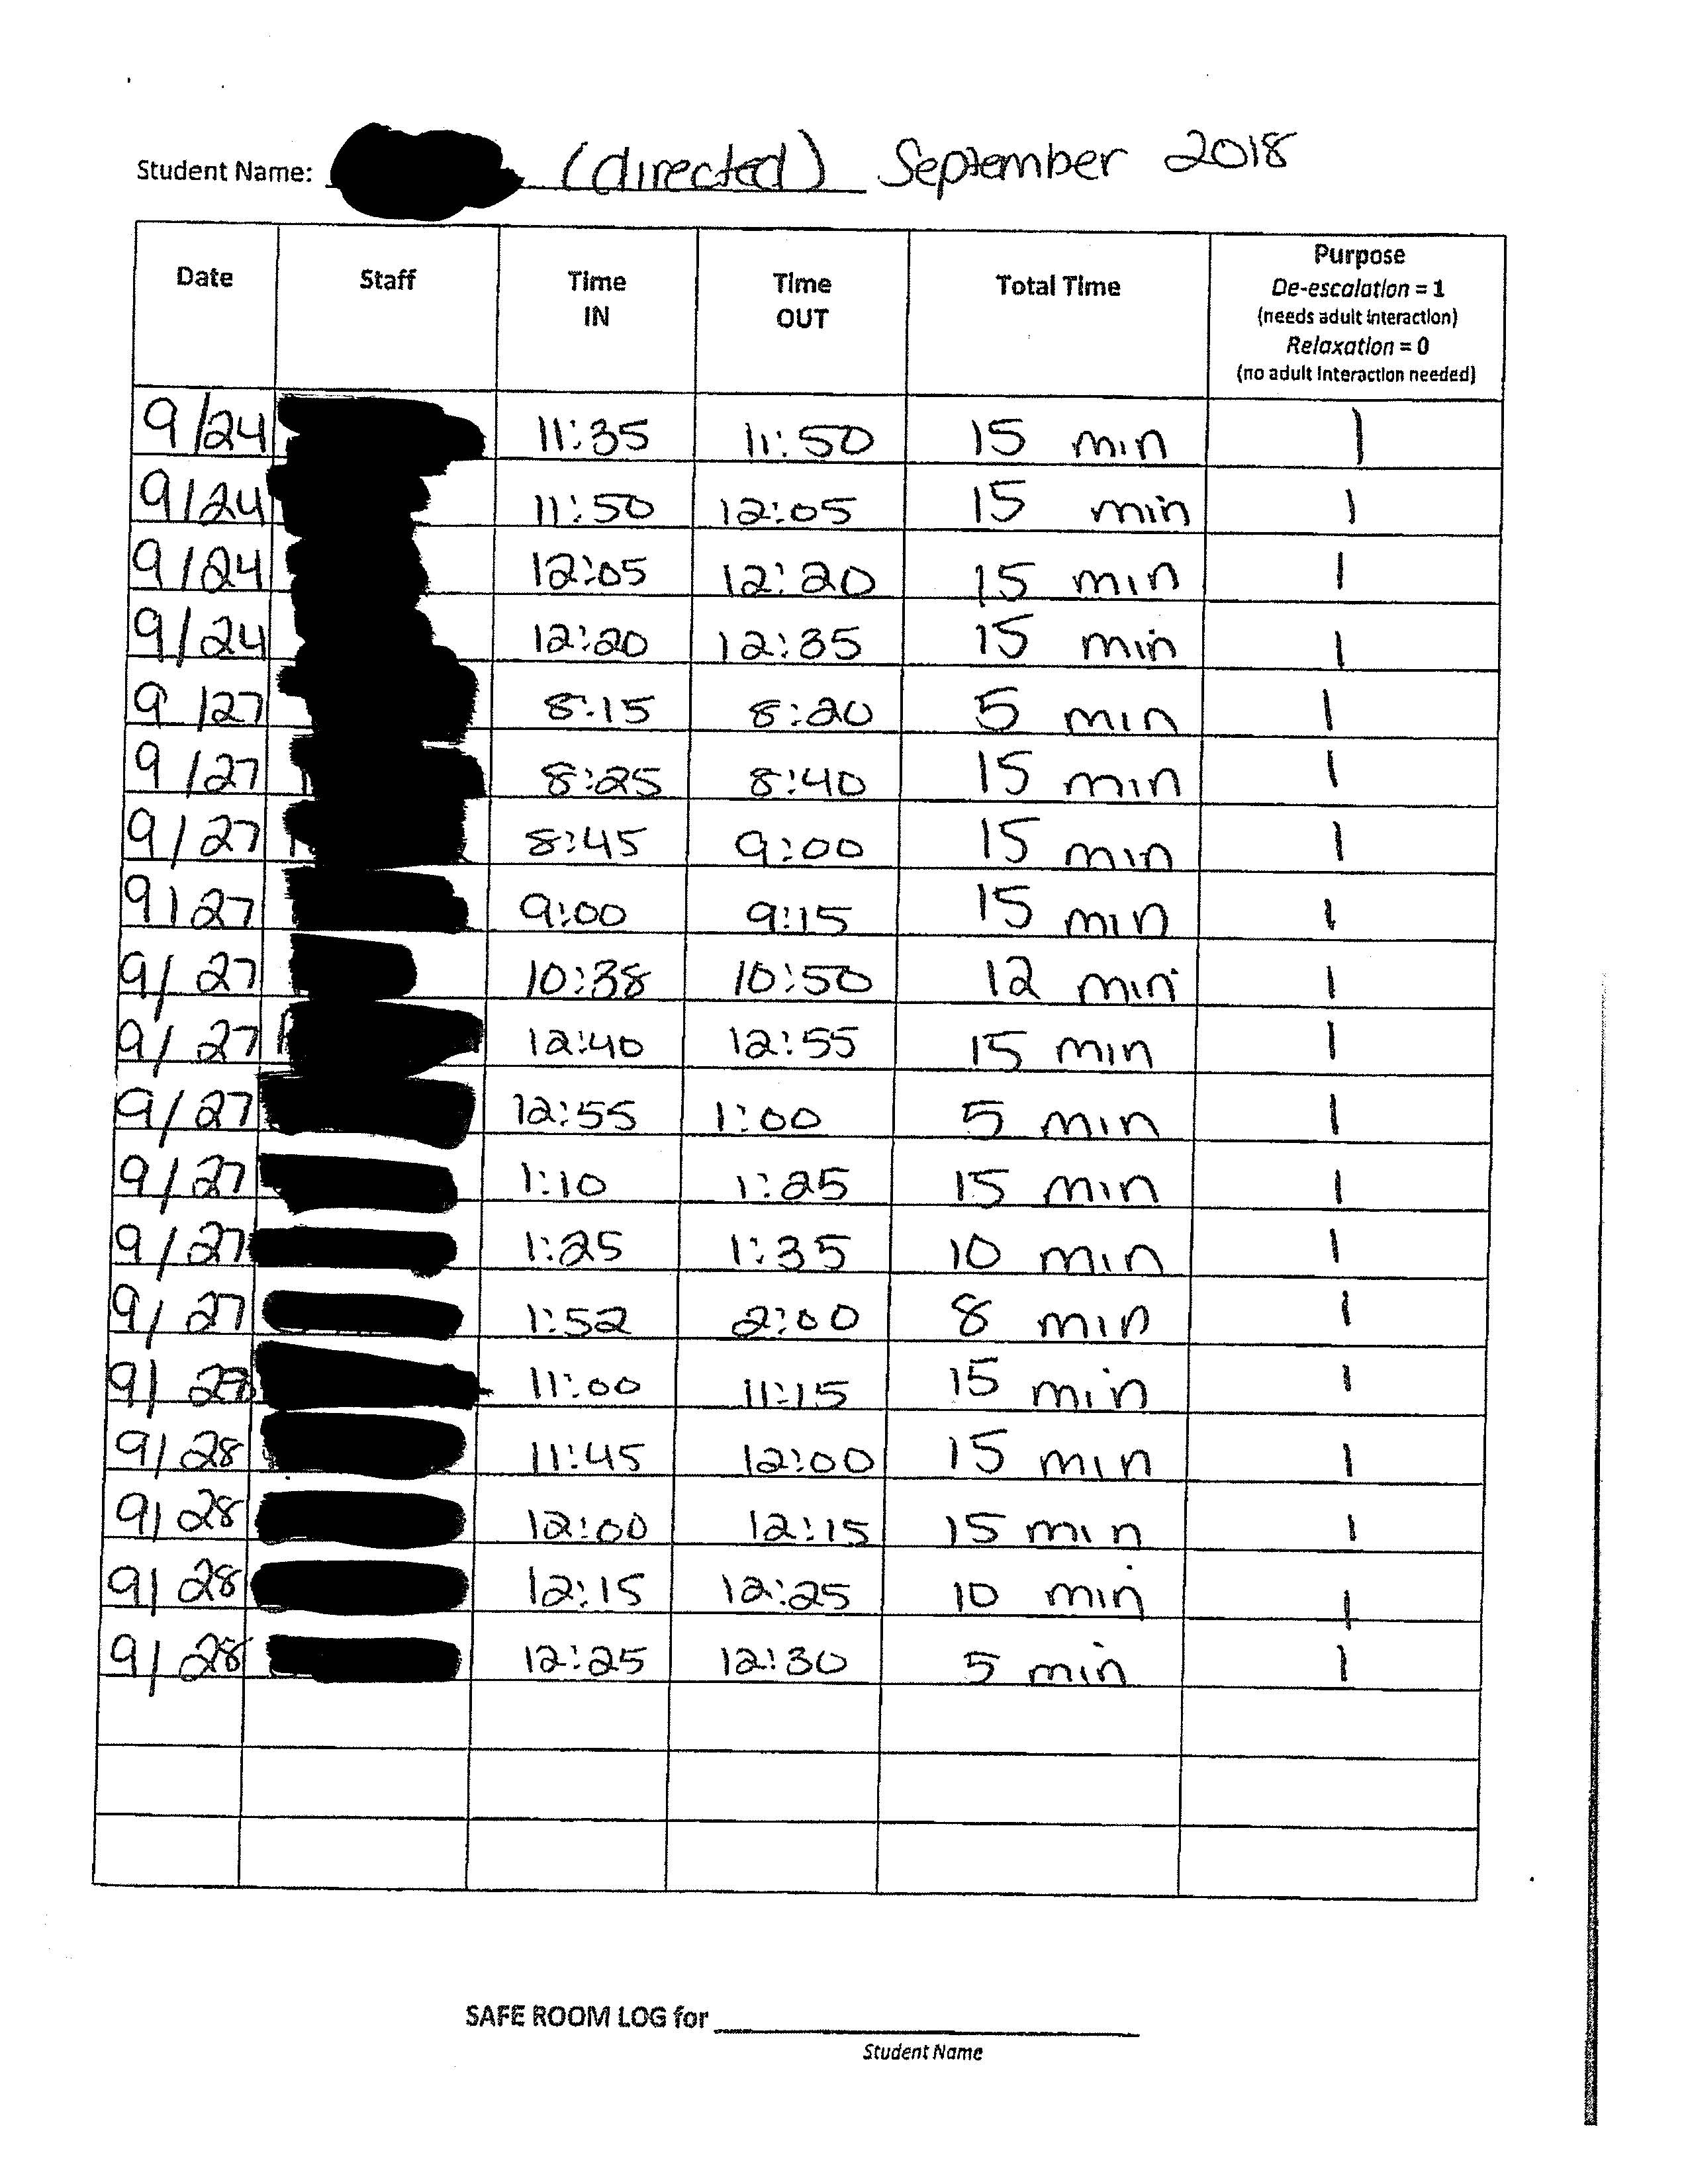 Student Name: (directed) September 2018
Date Staff Time IN Time OUT Total Time Purpose
De-escalation = 1
(needs adult interaction)
Relaxation = 0
(no adult interaction needed)
9/24 11:35 11:50 15 min 1
9/24 11:50 12:05 15 min 1
9/24 12:05 12:20 15 min 1
9/24 12:20 12:35 15 min 1
9/27 8:15 8:20 5 min 1
9/27 8:25 8:40 15 min 1
9/27 8:45 9:00 15 min 1
9/27 9:00 9:15 15 min 1
9/27 10:38 10:50 12 min 1
9/27 12:40 12:55 15 min 1
9/27 12:55 1:00 5 min 1
9/27 1:10 1:25 15 min 1
9/27 1:25 1:35 10 min 1
9/27 1:52 2:00 8 min 1
9/28 11:00 11:15 15 min 1
9/28 11:45 12:00 15 min 1
9/28 12:00 12:15 15 min 1
9/28 12:15 12:25 10 min 1
9/28 12:25 12:30 5 min 1
SAFE ROOM LOG for
Student Name